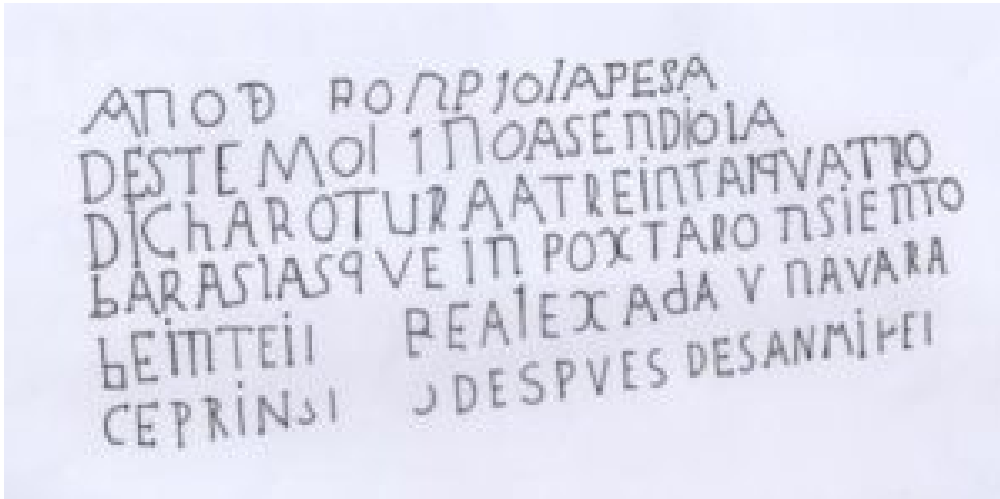 ANOD ROMPIOlAPESA
DESTEMOl INOASENDiOlA
DiChAROTURAATREiNTAIqVATRO
bARASlASqVEIN POXTARON SiENTO
bEiNTEiI REAlEXAdA V NAVARA
CEPRiN DESPVES DESANMi